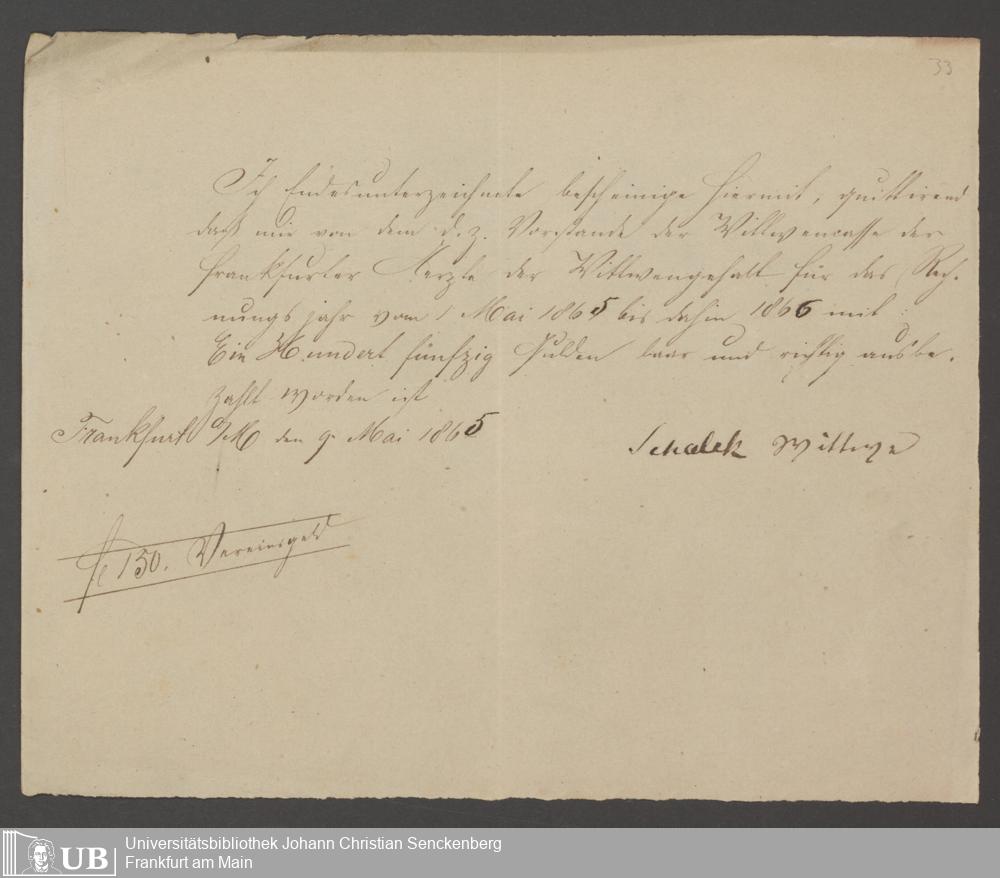 33
Ich Endesunterzeichnete bescheinige hiermit, quittirend
daß mir von dem d. z. Vorstande der Wittwencasse der
Frankfurter Aerzte der Wittwengehalt für das Rech-
nungsjahr vom 1 Mai 1865 bis dahin 1866 mit
Ein Hundert fünfzig Gulden baar und richtig ausbe-
zahlt worden ist
Frankfurt a/M den 9 Mai 1865
Schalck Wittwe
fl 150. Vereinsgeld
UB
Universitätsbibliothek Johann Christian Senckenberg
Frankfurt am Main